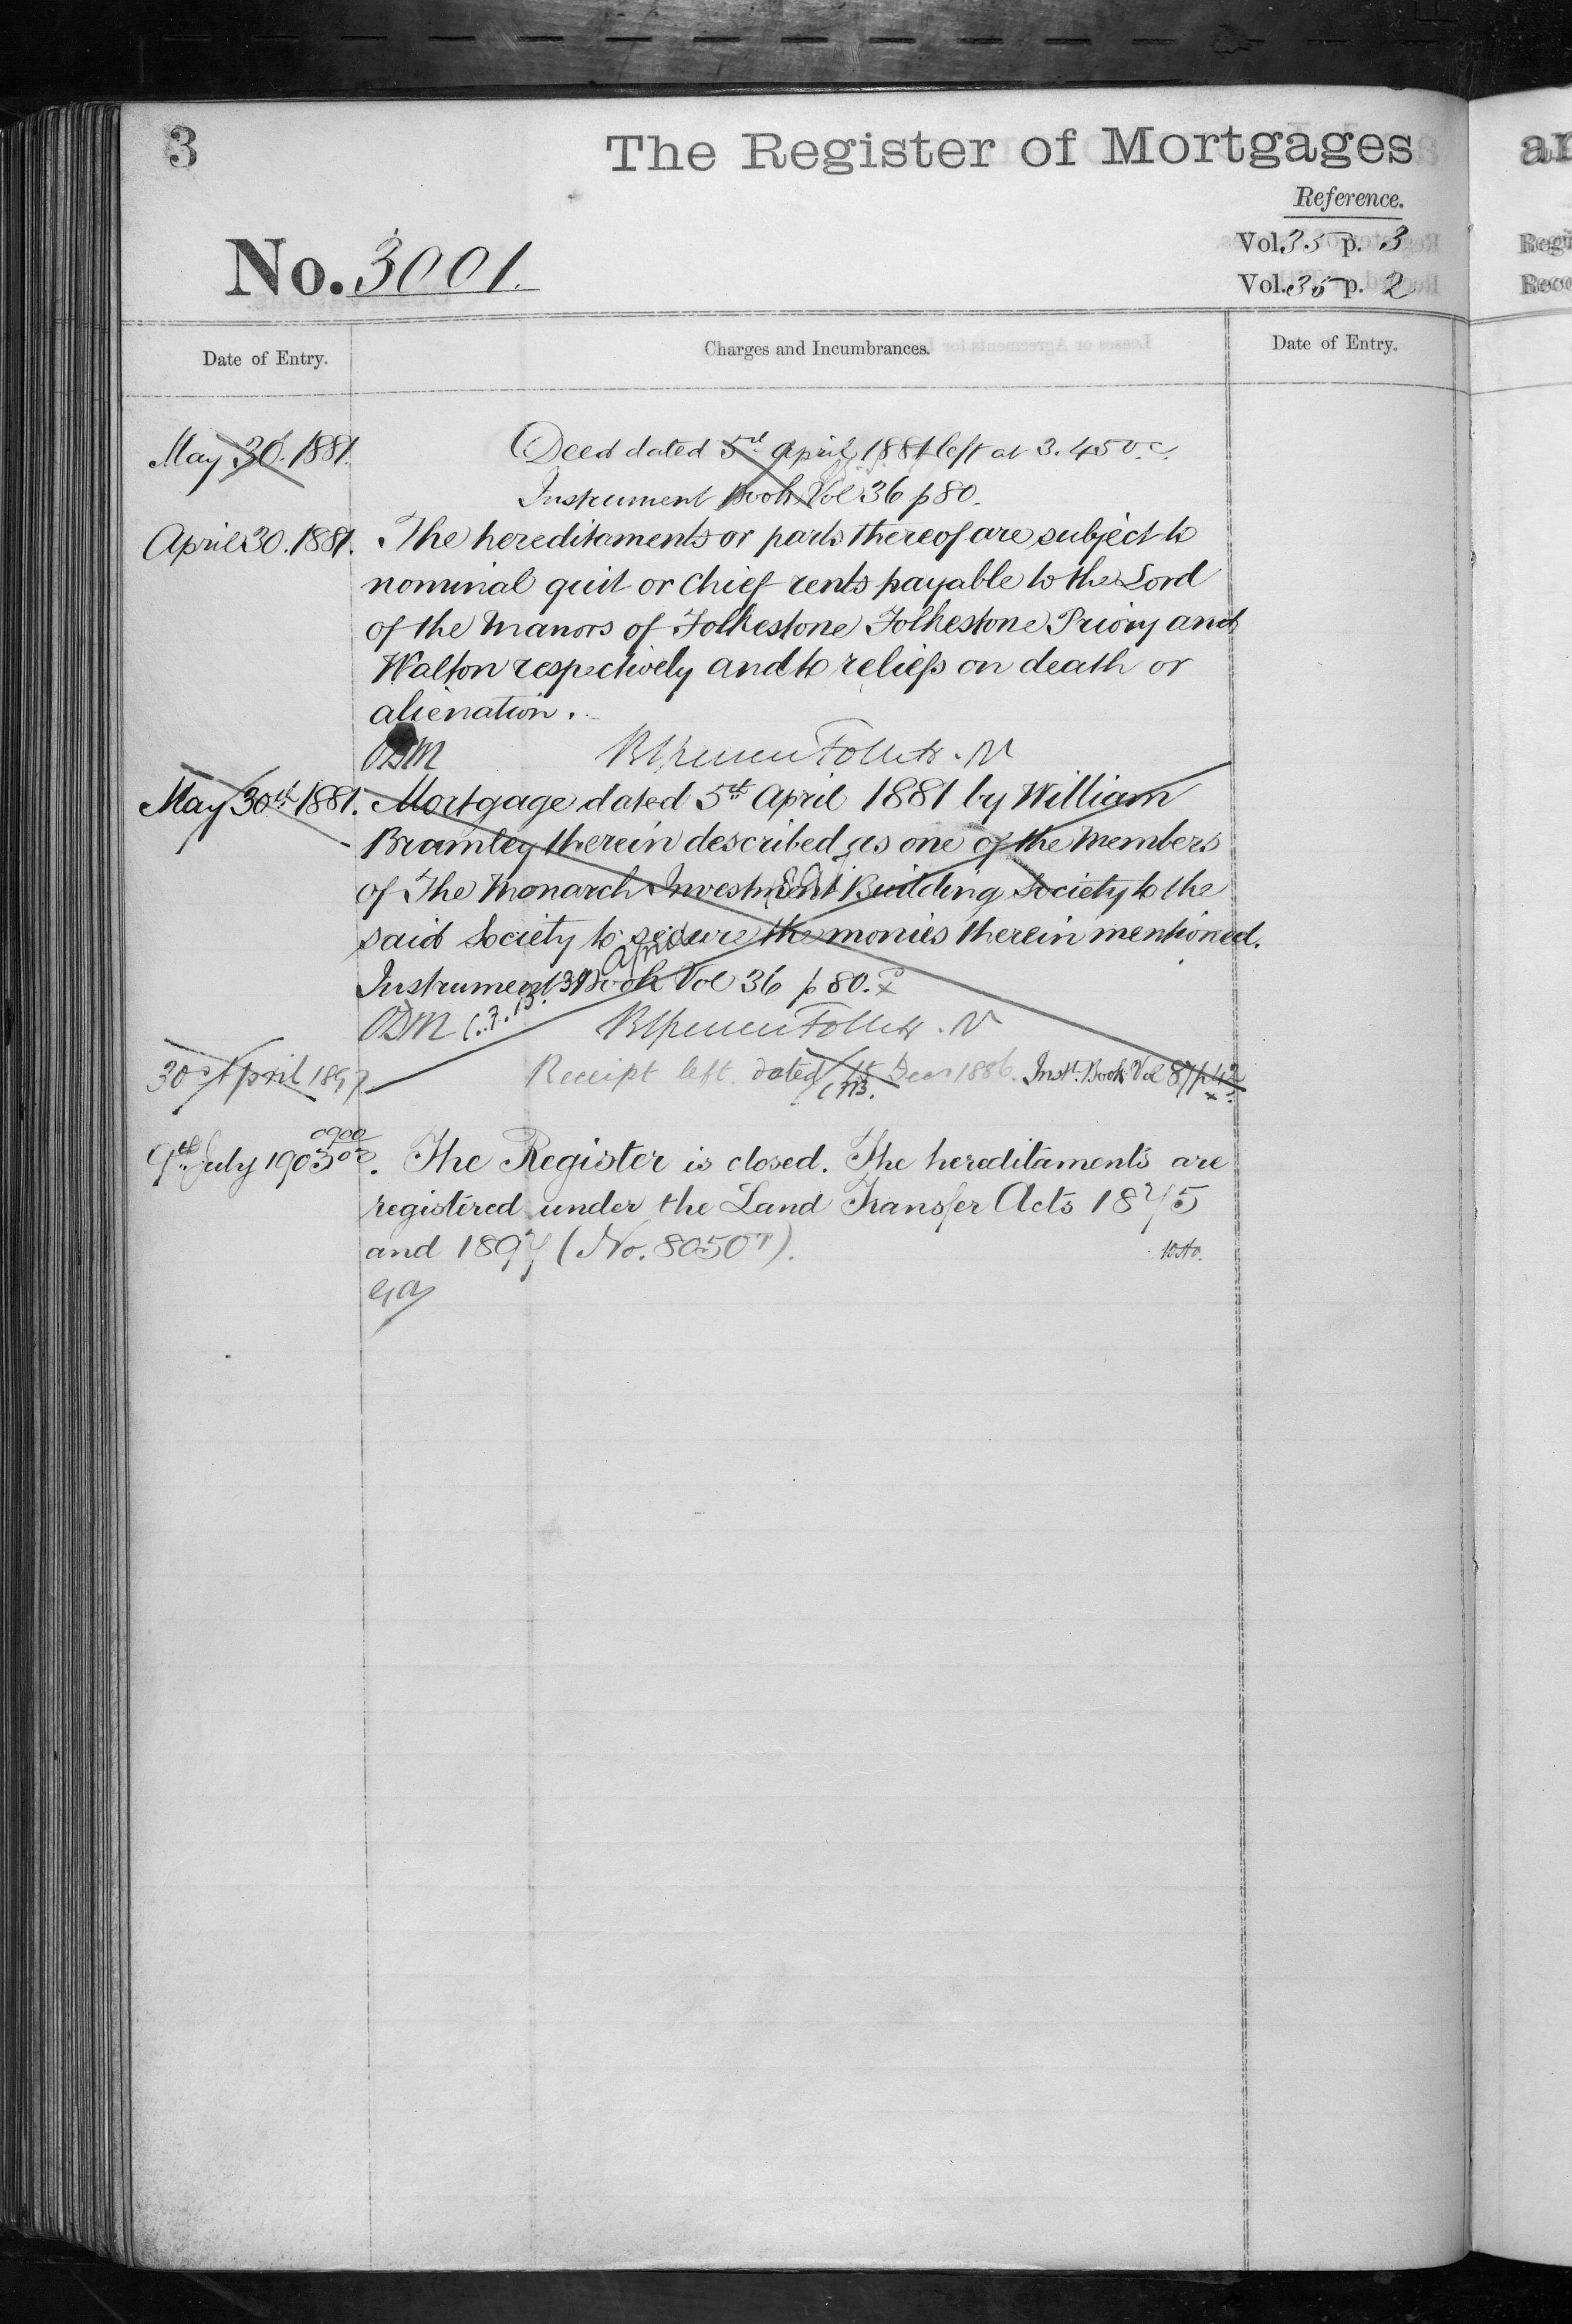 3
The Register of Mortgages
Reference.
No. 3001.
Vol. 35 p. 3
Vol. 35 p. 2
Date of Entry.
Charges and Incumbrances.
Date of Entry.
May 30. 1881. Deed dated 5th April 1881 left at 3.45 o.c.
Instrument Book Vol 36 p 80.
April 30. 1881. The hereditaments or parts thereof are subject to
nominal quit or chief rents payable to the Lord
of the Manors of Folkestone Folkestone Priory and
Walton respectively and to reliefs on death or
alienation.
May 30th 1881. Mortgage dated 5th April 1881 by William
Bramley therein described as one of the Members
of The Monarch Investment Building Society to the
said Society to secure the monies therein mentioned.
Instrument Book Vol 36 p 80.
30 April 1897 Receipt left dated 15 Decr 1886. Inst. Book Vol 87 p 42
9th July 1903. The Register is closed. The hereditaments are
registered under the Land Transfer Acts 1875
and 1897 (No. 8050).